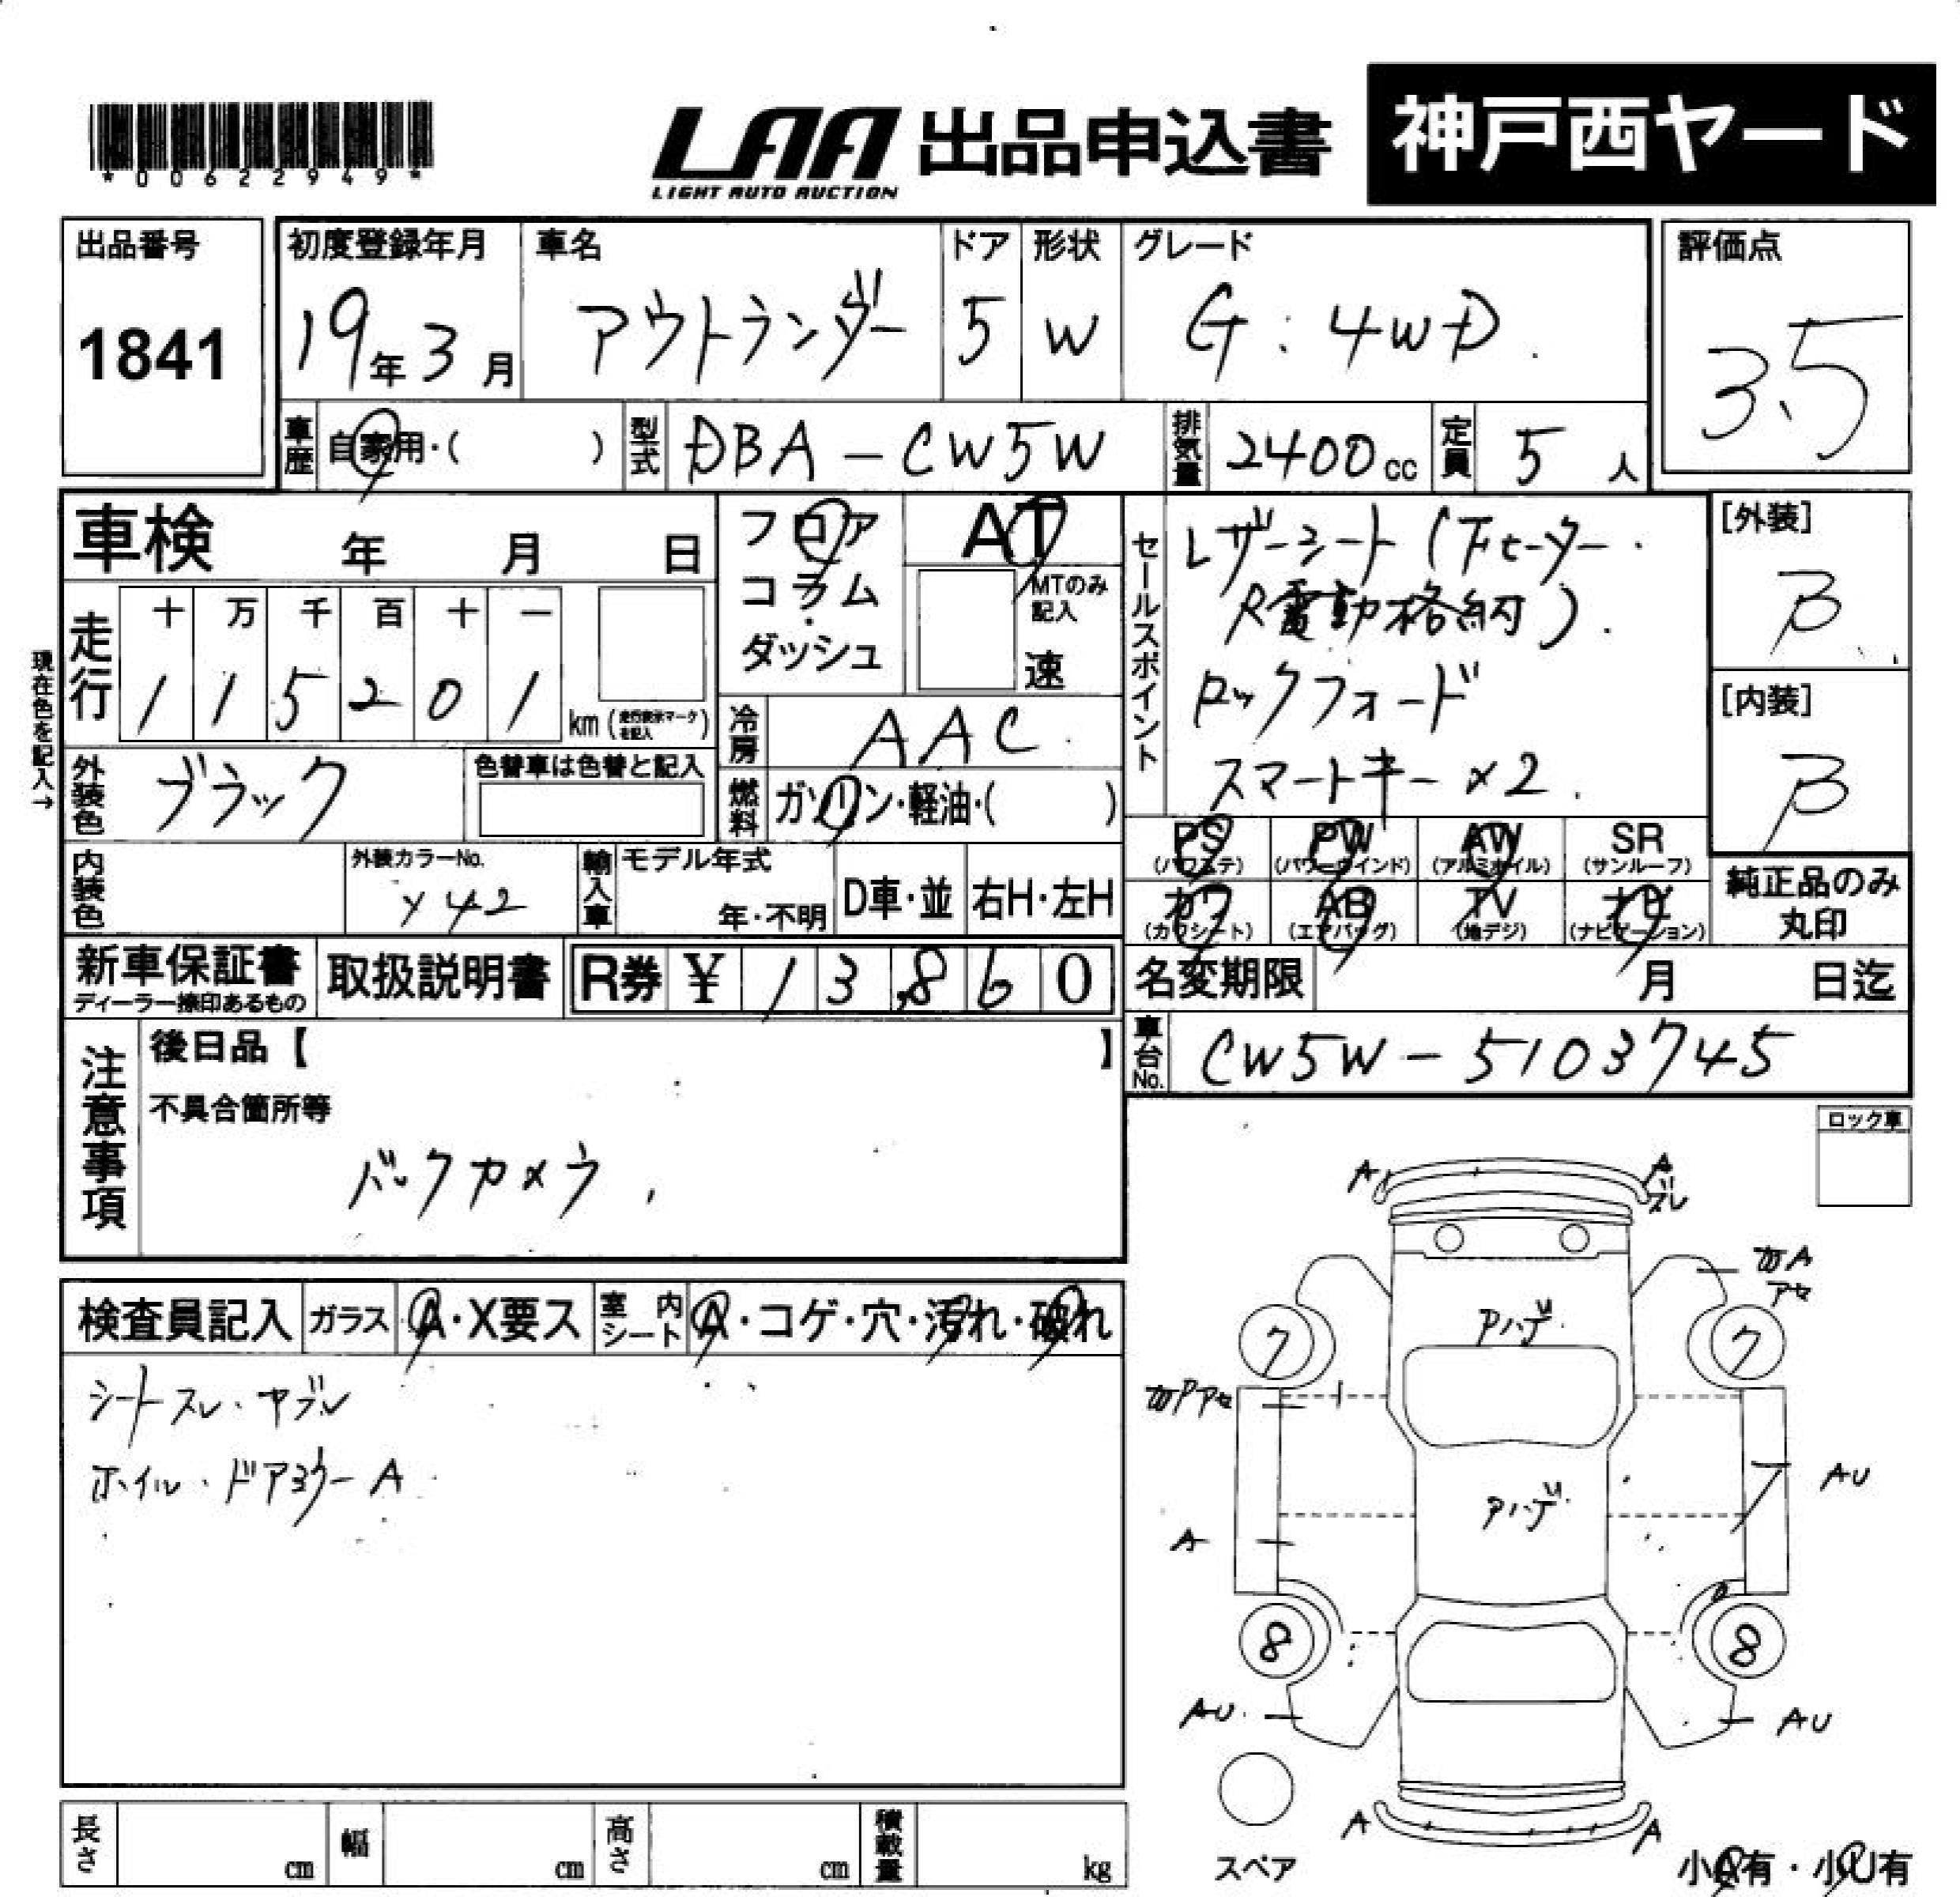 *00622949*
LAA 出品申込書 神戸西ヤード
LIGHT AUTO AUCTION
出品番号
1841
初度登録年月
19年3月
車名
アウトランダー
ドア
5
形状
W
グレード
G:4WD
評価点
3.5
車歴 自家用・( )
型式 DBA-CW5W
排気量 2400cc
定員 5人
車検 年 月 日
フロア
コラム
・
ダッシュ
AT
MTのみ
記入
速
セールスポイント
レザーシート(Fヒーター・
R電動格納)
ロックフォード
スマートキー×2
[外装]
B
[内装]
B
現在色を記入→
走行
十 万 千 百 十 一
1 1 5 2 0 1 km(走行表示マークを記入)
冷房 AAC
外装色 ブラック
色替車は色替と記入
燃料 ガソリン・軽油・( )
PS (パワステ)
PW (パワーウインド)
AW (アルミホイル)
SR (サンルーフ)
カワ (カワシート)
AB (エアバッグ)
TV (地デジ)
ナビ (ナビゲーション)
純正品のみ
丸印
内装色
外装カラーNo.
Y42
輸入車
モデル年式
年・不明
D車・並
右H・左H
新車保証書
ディーラー捺印あるもの
取扱説明書
R券 ¥ 13,860
名変期限 月 日迄
車台No. CW5W-5103745
注意事項
後日品【 】
不具合箇所等
バックカメラ
ロック車
検査員記入 ガラス A・X要ス 室内シート A・コゲ・穴・汚れ・破れ
シートスレ・ヤブレ
ホイル・ドアミラーA
A A
ズレ
アセ
7 Pハゲ 7
AU
Pハゲ
A
8 8
AU AU
A A
スペア
小A有・小U有
長さ cm
幅 cm
高さ cm
積載量 kg